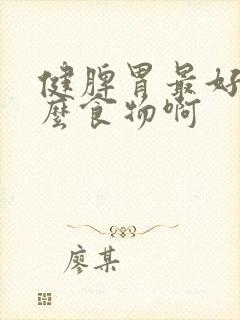 健脾胃最好
麼食物啊
廖某